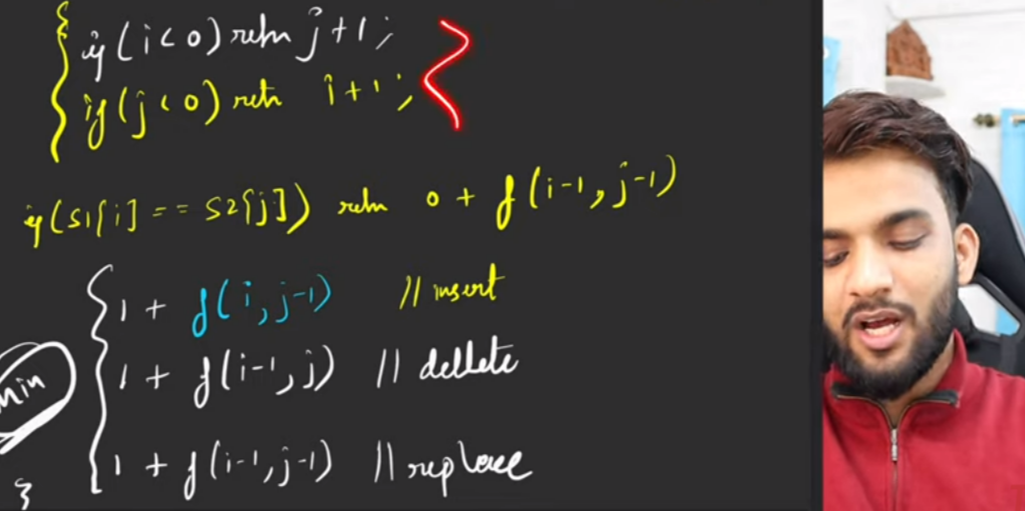 if (i < 0) retn j + 1;
if (j < 0) retn i + 1;
if (S1[i] == S2[j]) retn 0 + f(i-1, j-1)
1 + f(i, j-1) // insert
1 + f(i-1, j) // dellete
min
1 + f(i-1, j-1) // replace
}